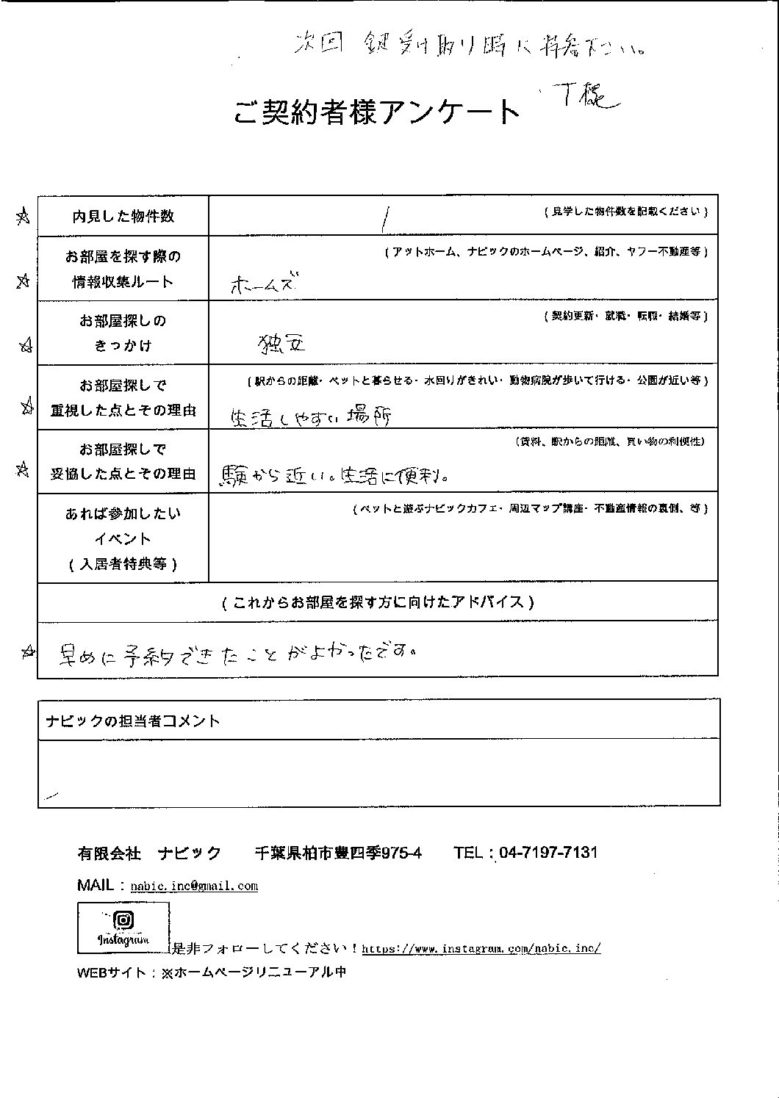 次回 鍵受け取り時に持参下さい。
T様
ご契約者様アンケート
☆ 内見した物件数
(見学した物件数を記載ください)
/
☆ お部屋を探す際の
情報収集ルート
(アットホーム、ナビックのホームページ、紹介、ヤフー不動産等)
ホームズ
☆ お部屋探しの
きっかけ
(契約更新・就職・転職・結婚等)
独立
☆ お部屋探しで
重視した点とその理由
(駅からの距離・ペットと暮らせる・水回りがきれい・動物病院が歩いて行ける・公園が近い等)
生活しやすい場所
☆ お部屋探しで
妥協した点とその理由
(賃料、駅からの距離、買い物の利便性)
駅から近い。生活に便利。
あれば参加したい
イベント
(入居者特典等)
(ペットと遊ぶナビックカフェ・周辺マップ講座・不動産情報の裏側、等)
(これからお部屋を探す方に向けたアドバイス)
☆ 早めに予約できたことがよかったです。
ナビックの担当者コメント
有限会社 ナビック 千葉県柏市豊四季975-4 TEL：04-7197-7131
MAIL：nabic.inc@gmail.com
Instagram
是非フォローしてください！https://www.instagram.com/nabic.inc/
WEBサイト：※ホームページリニューアル中